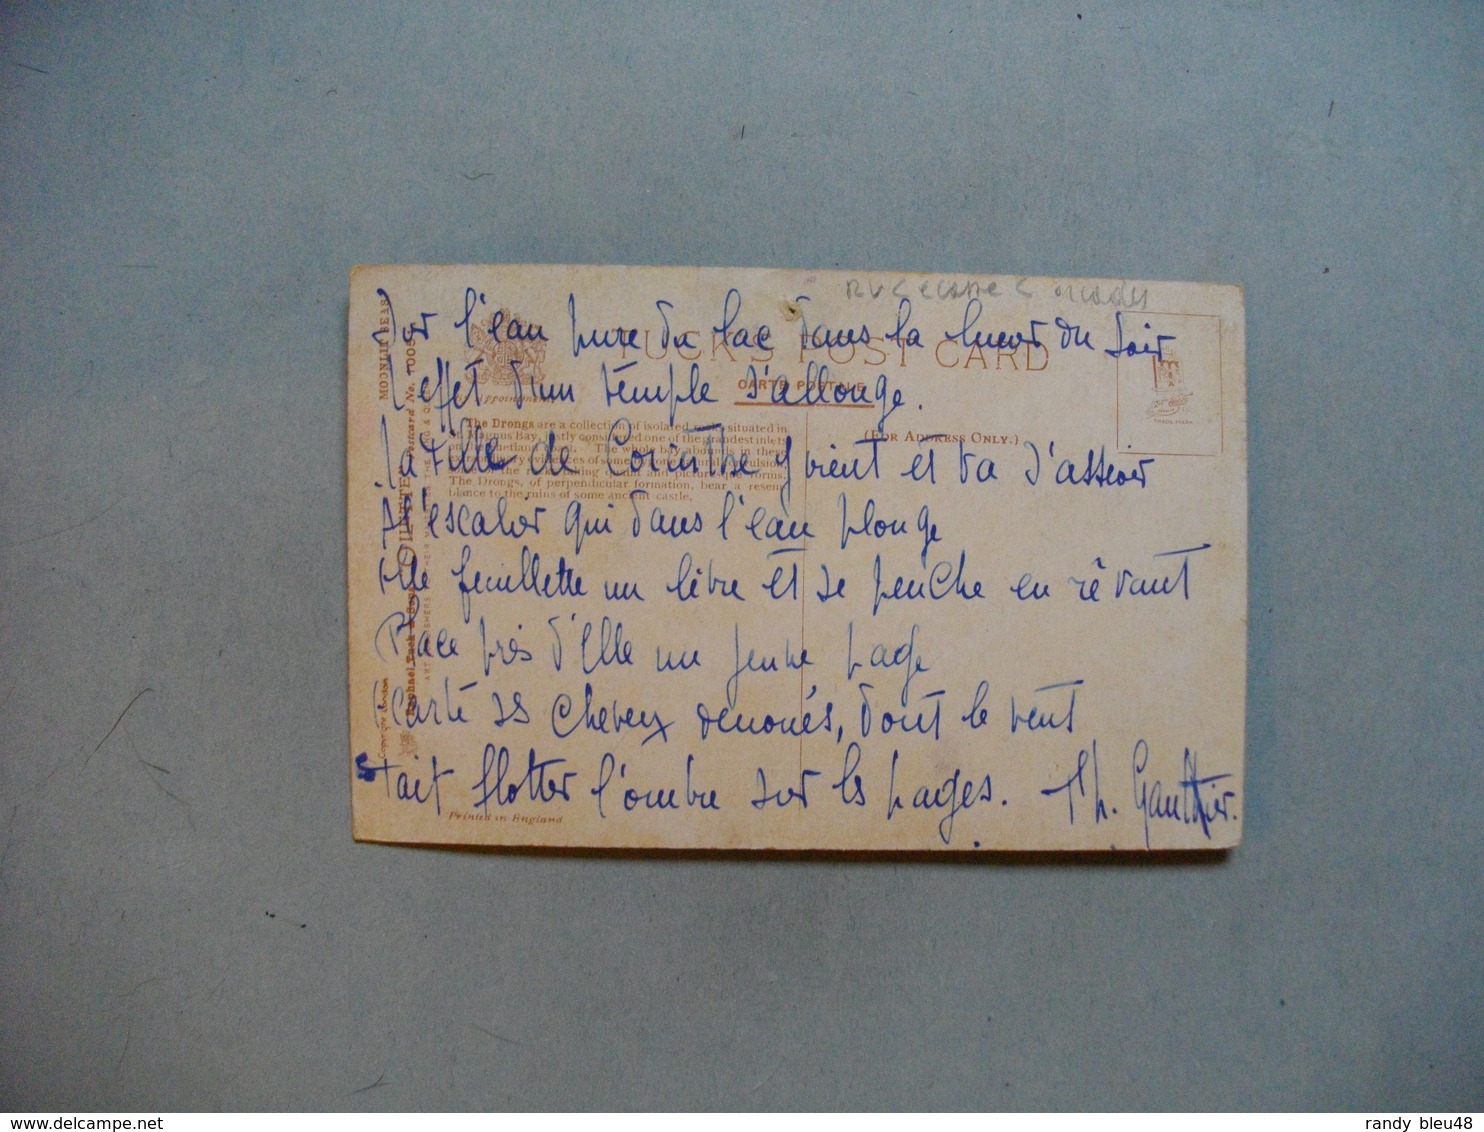 Sur l'eau pure du lac dans la lueur du soir
L'effet d'un temple s'allonge.
La fille de Corinthe y vient et va s'asseoir
A l'escalier qui dans l'eau plonge
Elle feuillette un livre et se penche en rêvant
Place près d'Elle un jeune page
Ecarte ses cheveux dénoués, dont le vent
Fait flotter l'ombre sur les pages. Th. Gautier.
TUCK'S POST CARD
CARTE POSTALE
(FOR ADDRESS ONLY.)
The Drongs are a collection of isolated situated in
Magnus Bay, one of the grandest inlets
The whole bay in these
of some
the forms.
The Drongs, of perpendicular formation, bear a resem-
blance to the ruins of some ancient castle.
Printed in England
MOONLIT SEAS
Postcard No.
Raphael Tuck & Sons
Copyright London
TRADE MARK
delcampe.net
randy_bleu48